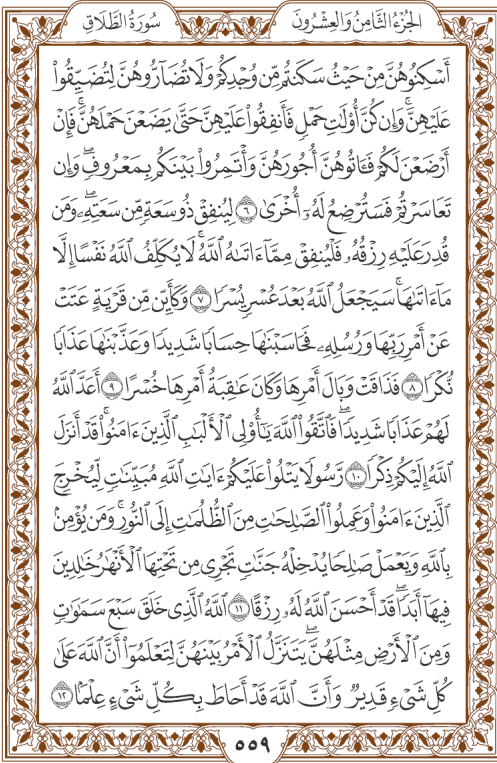 سُورَةُ الطَّلَاقِ
الجُزْءُ الثَّامِنُ وَالعِشْرُونَ
أَسْكِنُوهُنَّ مِنْ حَيْثُ سَكَنتُم مِّن وُجْدِكُمْ وَلَا تُضَآرُّوهُنَّ لِتُضَيِّقُوا۟
عَلَيْهِنَّ ۚ وَإِن كُنَّ أُو۟لَـٰتِ حَمْلٍ فَأَنفِقُوا۟ عَلَيْهِنَّ حَتَّىٰ يَضَعْنَ حَمْلَهُنَّ ۚ فَإِنْ
أَرْضَعْنَ لَكُمْ فَـَٔاتُوهُنَّ أُجُورَهُنَّ ۖ وَأْتَمِرُوا۟ بَيْنَكُم بِمَعْرُوفٍ ۖ وَإِن
تَعَاسَرْتُمْ فَسَتُرْضِعُ لَهُۥٓ أُخْرَىٰ ٦ لِيُنفِقْ ذُو سَعَةٍ مِّن سَعَتِهِۦ ۖ وَمَن
قُدِرَ عَلَيْهِ رِزْقُهُۥ فَلْيُنفِقْ مِمَّآ ءَاتَىٰهُ ٱللَّهُ ۚ لَا يُكَلِّفُ ٱللَّهُ نَفْسًا إِلَّا
مَآ ءَاتَىٰهَا ۚ سَيَجْعَلُ ٱللَّهُ بَعْدَ عُسْرٍ يُسْرًا ٧ وَكَأَيِّن مِّن قَرْيَةٍ عَتَتْ
عَنْ أَمْرِ رَبِّهَا وَرُسُلِهِۦ فَحَاسَبْنَـٰهَا حِسَابًا شَدِيدًا وَعَذَّبْنَـٰهَا عَذَابًا
نُّكْرًا ٨ فَذَاقَتْ وَبَالَ أَمْرِهَا وَكَانَ عَـٰقِبَةُ أَمْرِهَا خُسْرًا ٩ أَعَدَّ ٱللَّهُ
لَهُمْ عَذَابًا شَدِيدًا ۖ فَٱتَّقُوا۟ ٱللَّهَ يَـٰٓأُو۟لِى ٱلْأَلْبَـٰبِ ٱلَّذِينَ ءَامَنُوا۟ ۚ قَدْ أَنزَلَ
ٱللَّهُ إِلَيْكُمْ ذِكْرًا ١٠ رَّسُولًا يَتْلُوا۟ عَلَيْكُمْ ءَايَـٰتِ ٱللَّهِ مُبَيِّنَـٰتٍ لِّيُخْرِجَ
ٱلَّذِينَ ءَامَنُوا۟ وَعَمِلُوا۟ ٱلصَّـٰلِحَـٰتِ مِنَ ٱلظُّلُمَـٰتِ إِلَى ٱلنُّورِ ۚ وَمَن يُؤْمِنۢ
بِٱللَّهِ وَيَعْمَلْ صَـٰلِحًا يُدْخِلْهُ جَنَّـٰتٍ تَجْرِى مِن تَحْتِهَا ٱلْأَنْهَـٰرُ خَـٰلِدِينَ
فِيهَآ أَبَدًا ۖ قَدْ أَحْسَنَ ٱللَّهُ لَهُۥ رِزْقًا ١١ ٱللَّهُ ٱلَّذِى خَلَقَ سَبْعَ سَمَـٰوَٰتٍ
وَمِنَ ٱلْأَرْضِ مِثْلَهُنَّ ۖ يَتَنَزَّلُ ٱلْأَمْرُ بَيْنَهُنَّ لِتَعْلَمُوٓا۟ أَنَّ ٱللَّهَ عَلَىٰ
كُلِّ شَىْءٍ قَدِيرٌ وَأَنَّ ٱللَّهَ قَدْ أَحَاطَ بِكُلِّ شَىْءٍ عِلْمًۢا ١٢
٥٥٩